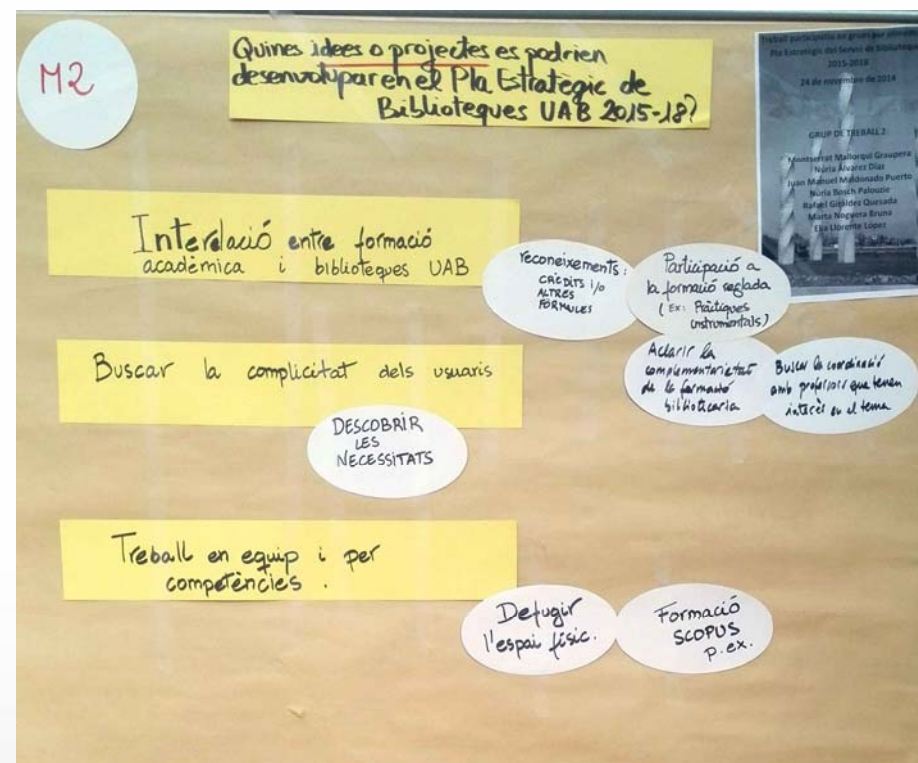 M2
Quines idees o projectes es podrien
desenvolupar en el Pla Estratègic de
Biblioteques UAB 2015-18?
Treball participatiu en grups per
Pla Estratègic del Servei de Biblioteques
2015-2018
24 de novembre de 2014
GRUP DE TREBALL 2
Montserrat Mallorquí Graupera
Núria Álvarez Díaz
Juan Manuel Maldonado Puerto
Núria Bosch Palouzie
Rafael Giráldez Quesada
Marta Noguera Bruna
Elia Llorente López
Interelació entre formació
acadèmica i biblioteques UAB
reconeixements:
CRÈDITS i/o
ALTRES
FÓRMULES
Participació a
la formació reglada
(Ex: Pràctiques
instrumentals)
Buscar la complicitat dels usuaris
Aclarir la
complementarietat
de la formació
bibliotecaria
Buscar la coordinació
amb professors que tenen
interès en el tema
DESCOBRIR
LES
NECESSITATS
Treball en equip i per
competències.
Defugir
l'espai físic.
Formació
SCOPUS
p.ex.